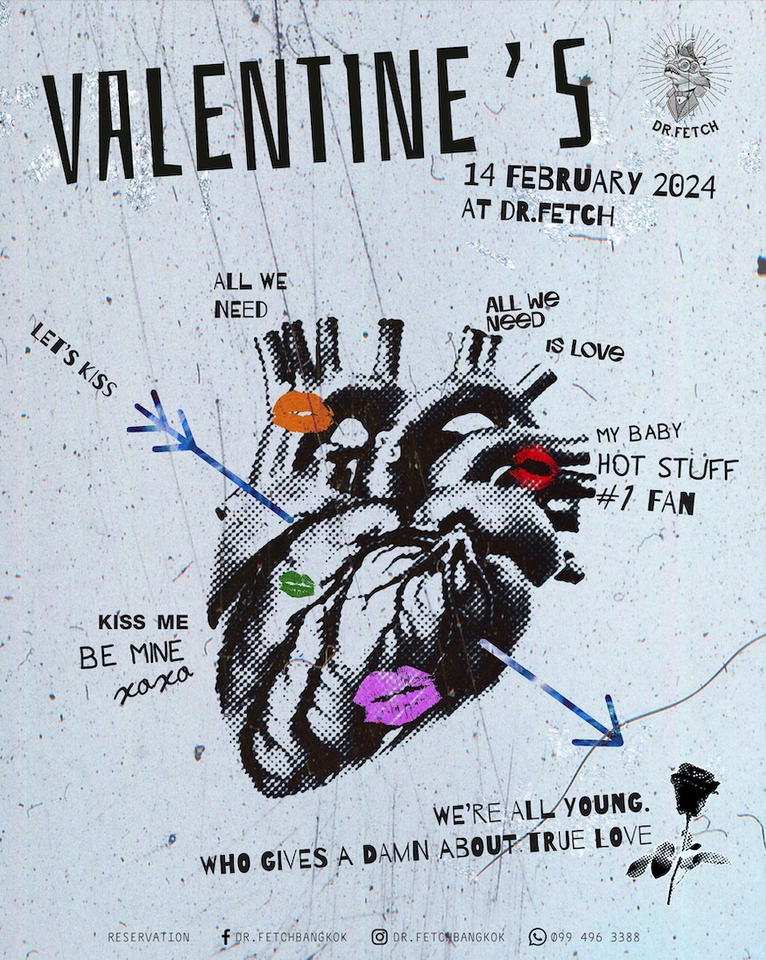 VALENTINE'S
DR.FETCH
14 FEBRUARY 2024
AT DR.FETCH
ALL WE
NEED
ALL WE
NEED
IS LOVE
LET'S KISS
MY BABY
HOT STUFF
#1 FAN
KISS ME
BE MINE
xoxo
WE'RE ALL YOUNG.
WHO GIVES A DAMN ABOUT TRUE LOVE
RESERVATION DR.FETCHBANGKOK DR.FETCHBANGKOK 099 496 3388